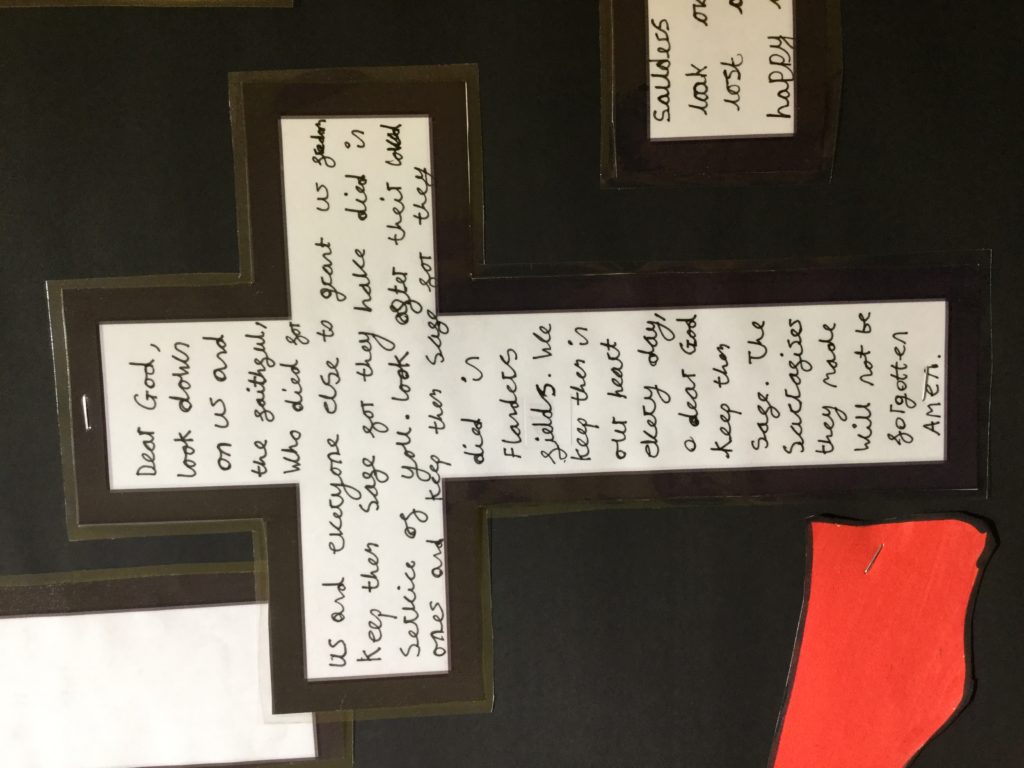 Dear God,
look down
on us and
the faithful,
who died for
us and everyone else to grant us freedom
keep them safe for they have died in
service of you. look after their loved
ones and keep them safe for they
died in
Flanders
fields. We
keep them in
our heart
every day,
o dear God
keep them
safe. The
sacrafises
they made
will not be
forgotten
AMEN.
Saulders
look
lost
happy